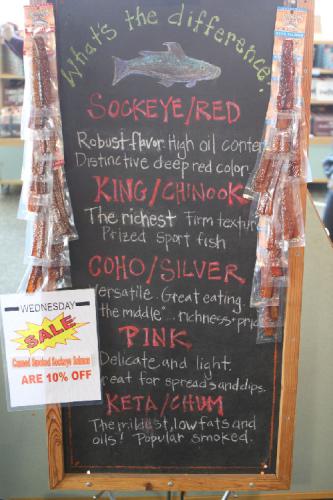 What's the difference?
SOCKEYE/RED
Robust flavor High oil conten
Distinctive deep red color
KING/CHINOOK
The richest Firm textur
Prized Sport fish
COHO/SILVER
Versatile. Great eating.
the middle"... richness+pric
PINK
Delicate and light.
reat for spreads and dips.
KETA/CHUM
The mildest, low fats and
oils! Popular smoked.
WEDNESDAY
SALE
Canned Smoked Sockeye Salmon
ARE 10% OFF